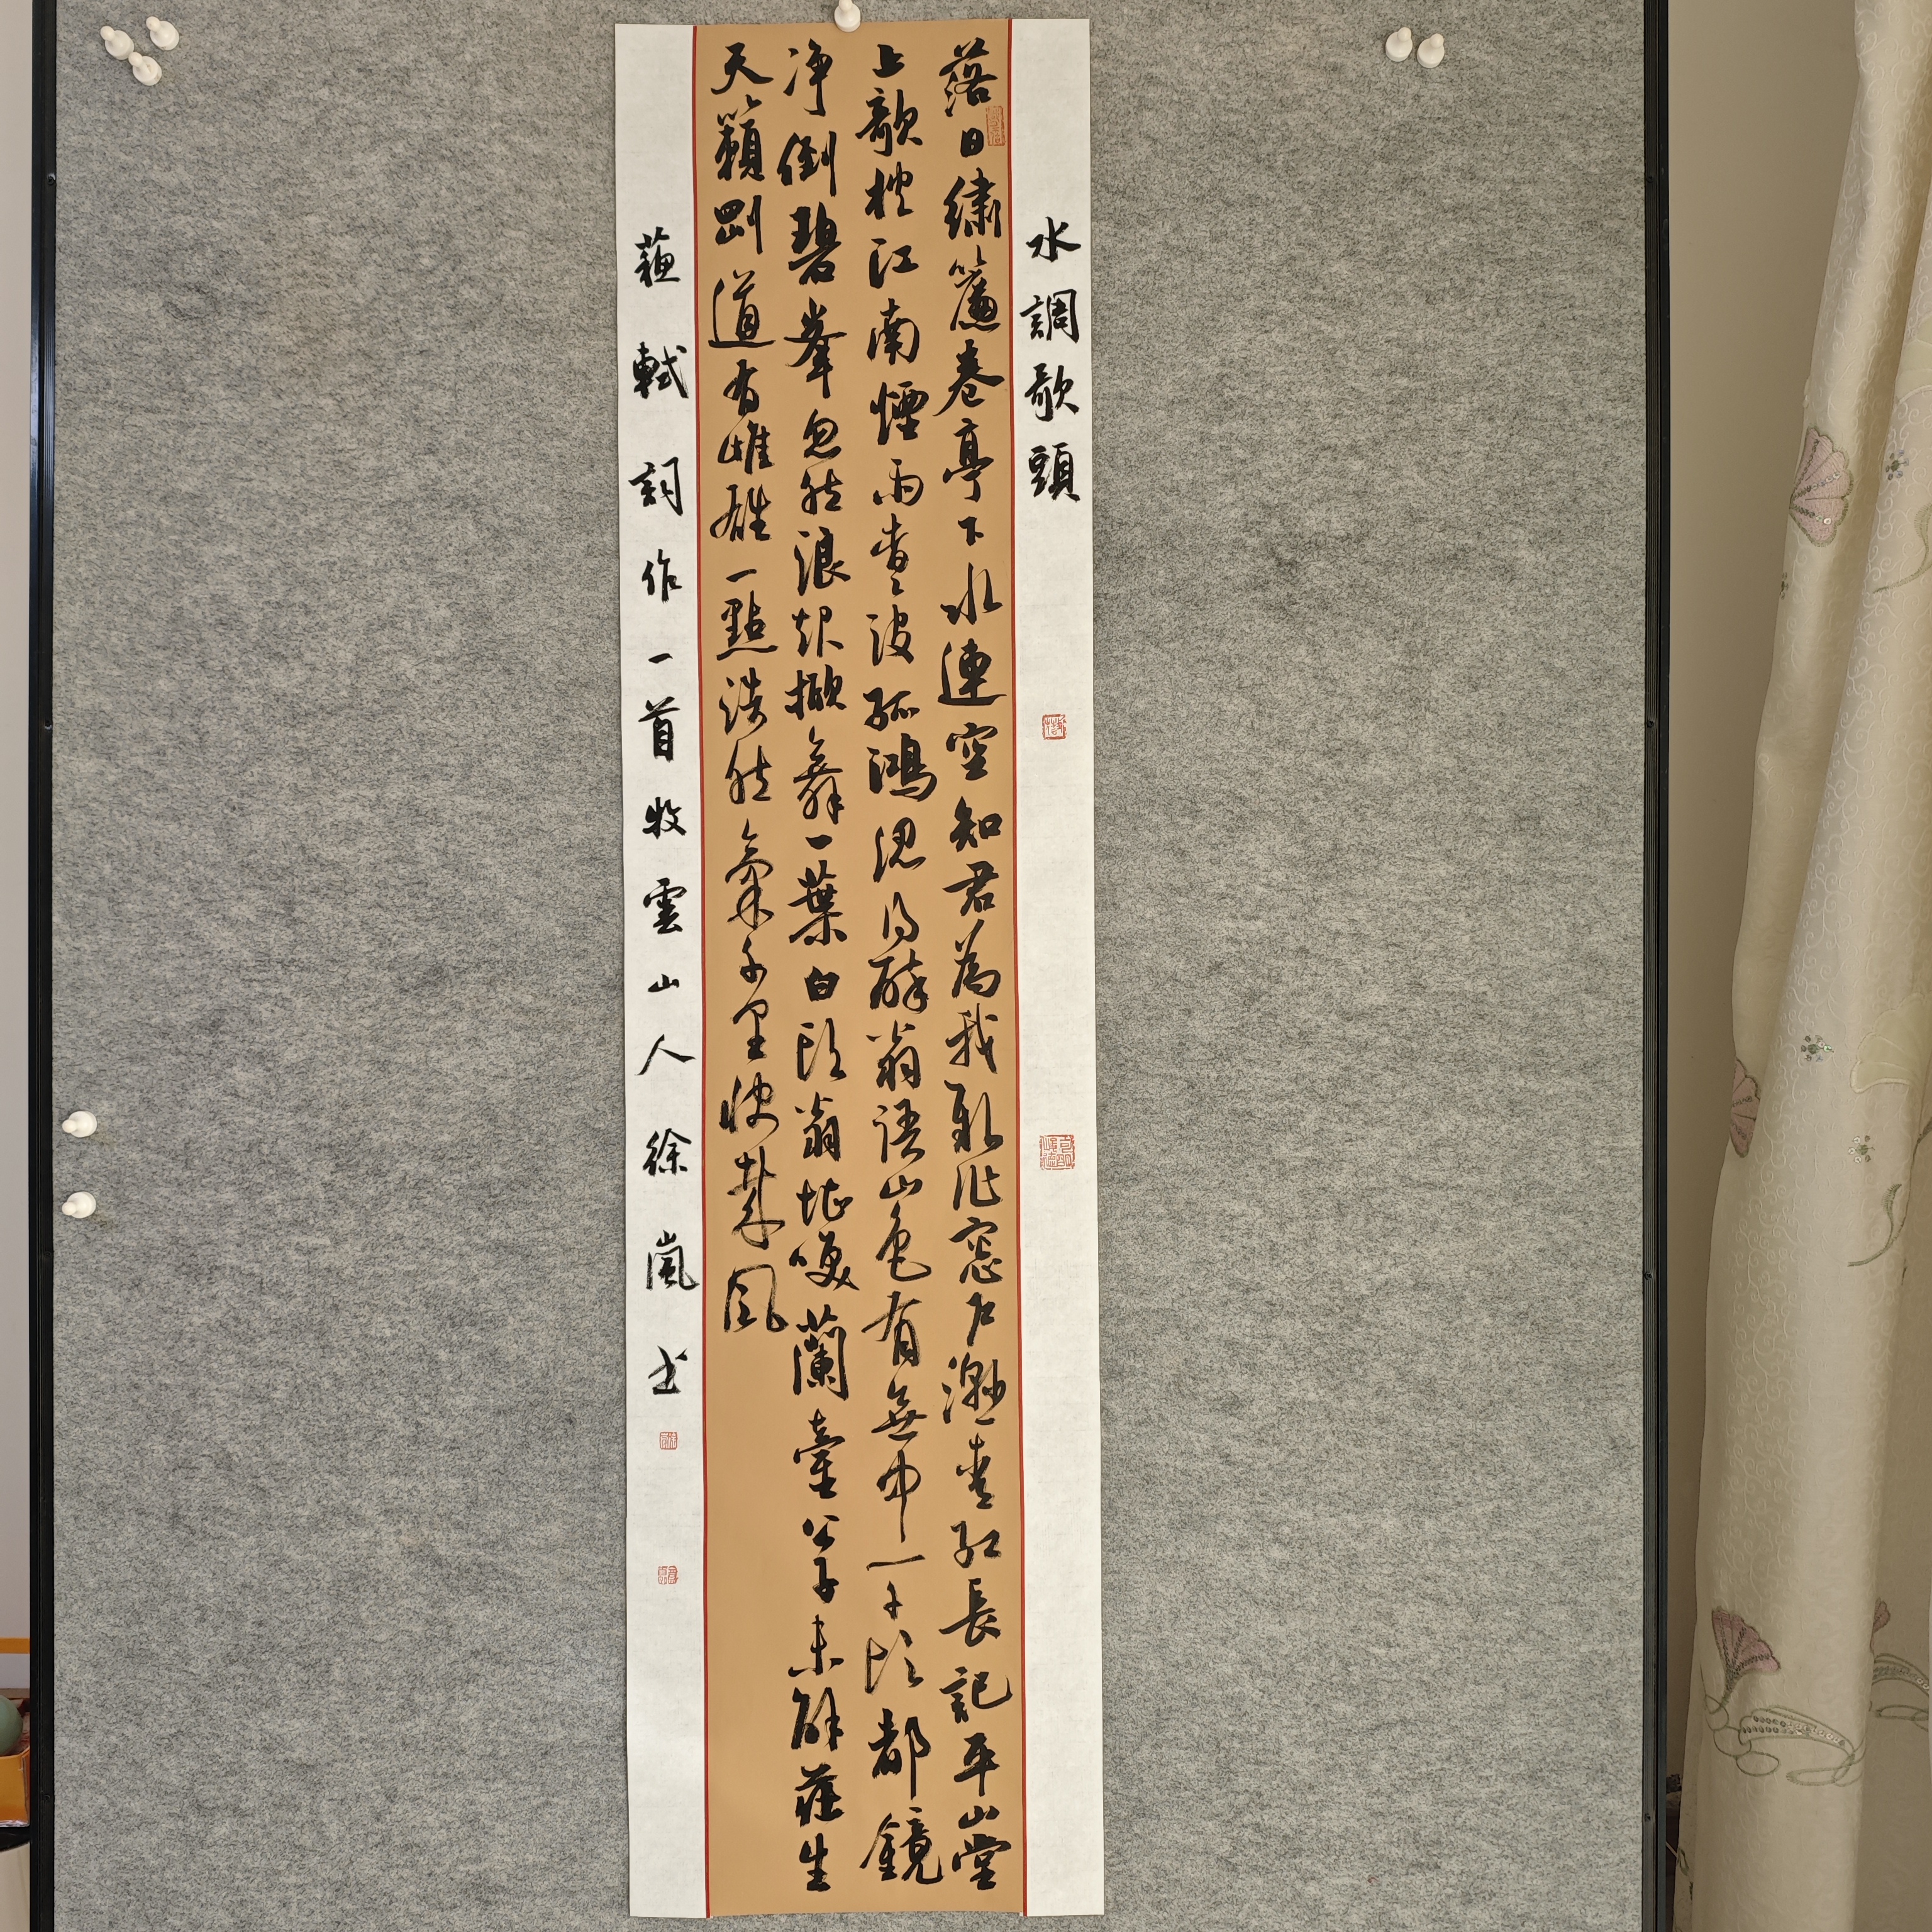 水調歌頭
落日繡簾卷亭下水連空知君為我新作窓戶濕青紅長記平山堂
上欹枕江南煙雨杳〻沒孤鴻認得醉翁語山色有無中一千頃都鏡
净倒碧峯忽然浪起掀舞一葉白頭翁堪咲蘭臺公子未解莊生
天籟剛道有雌雄一點浩然氣千里快哉風
蘇軾詞作一首牧雲山人徐嵐书